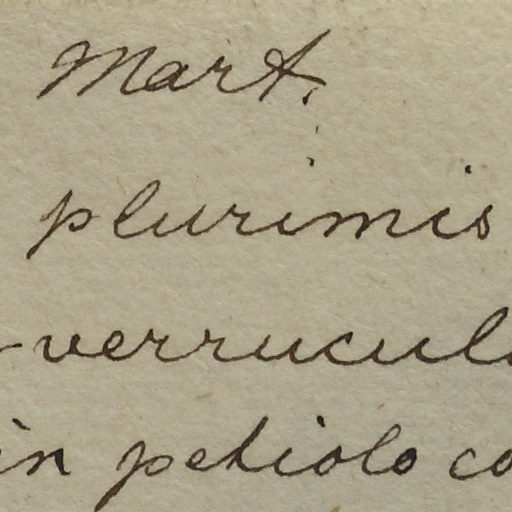 Mart.
plurimis
-verrucul
in petiolo co